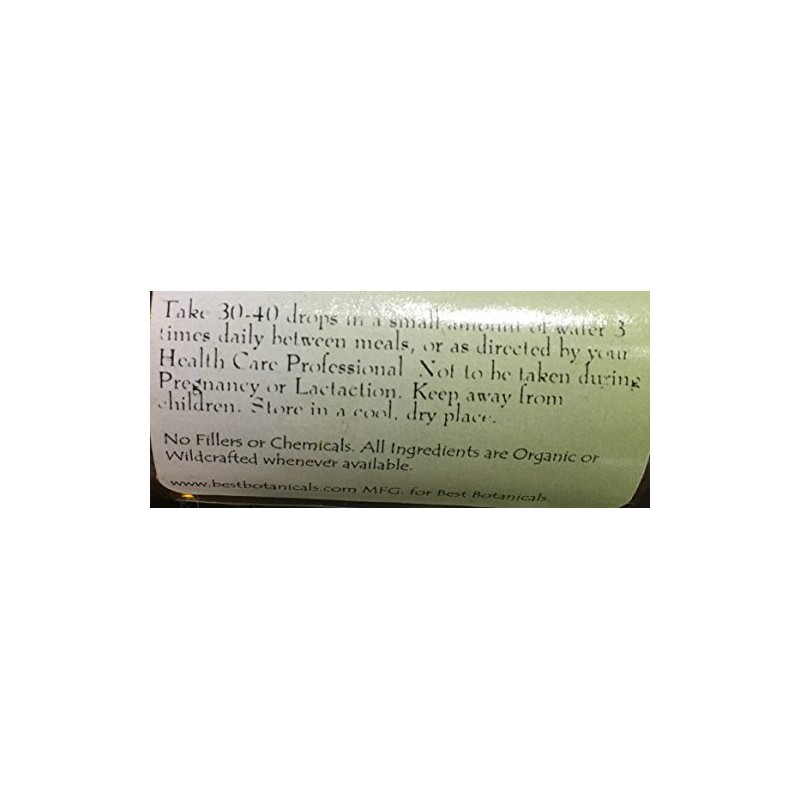 Take 30-40 drops in a small amount of water 3
times daily between meals, or as directed by your
Health Care Professional Not to be taken during
Pregnancy or Lactaction. Keep away from
children. Store in a cool, dry place.
No Fillers or Chemicals. All Ingredients are Organic or
Wildcrafted whenever available.
www.bestbotanicals.com MFG. for Best Botanicals